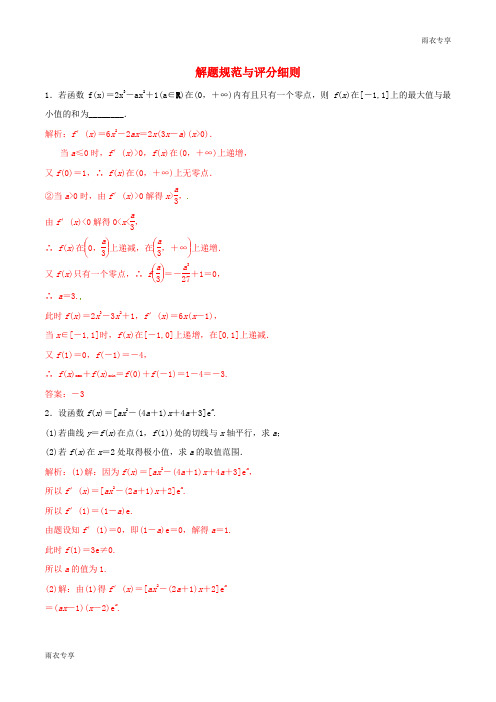 雨衣专享
解题规范与评分细则
1．若函数 f(x)＝2x³－ax²＋1(a∈R)在(0，＋∞)内有且只有一个零点，则 f(x)在[－1,1]上的最大值与最
小值的和为________．
解析：f′(x)＝6x²－2ax＝2x(3x－a)(x>0)．
当 a≤0 时，f′(x)>0，f(x)在(0，＋∞)上递增，
又 f(0)＝1，∴ f(x)在(0，＋∞)上无零点．
②当 a>0 时，由 f′(x)>0 解得 x>a/3，.
由 f′(x)<0 解得 0<x<a/3，
∴ f(x)在(0，a/3)上递减，在(a/3，＋∞)上递增．
又 f(x)只有一个零点，∴ f(a/3)＝－a³/27＋1＝0，
∴ a＝3.,
此时 f(x)＝2x³－3x²＋1，f′(x)＝6x(x－1)，
当 x∈[－1,1]时，f(x)在[－1,0]上递增，在[0,1]上递减．
又 f(1)＝0，f(－1)＝－4，
∴ f(x)max＋f(x)min＝f(0)＋f(－1)＝1－4＝－3.
答案：－3
2．设函数 f(x)＝[ax²－(4a＋1)x＋4a＋3]eˣ.
(1)若曲线 y＝f(x)在点(1，f(1))处的切线与 x 轴平行，求 a；
(2)若 f(x)在 x＝2 处取得极小值，求 a 的取值范围．
解析：(1)解：因为 f(x)＝[ax²－(4a＋1)x＋4a＋3]eˣ，
所以 f′(x)＝[ax²－(2a＋1)x＋2]eˣ.
所以 f′(1)＝(1－a)e.
由题设知 f′(1)＝0，即(1－a)e＝0，解得 a＝1.
此时 f(1)＝3e≠0.
所以 a 的值为 1.
(2)解：由(1)得 f′(x)＝[ax²－(2a＋1)x＋2]eˣ
＝(ax－1)(x－2)eˣ.
雨衣专享